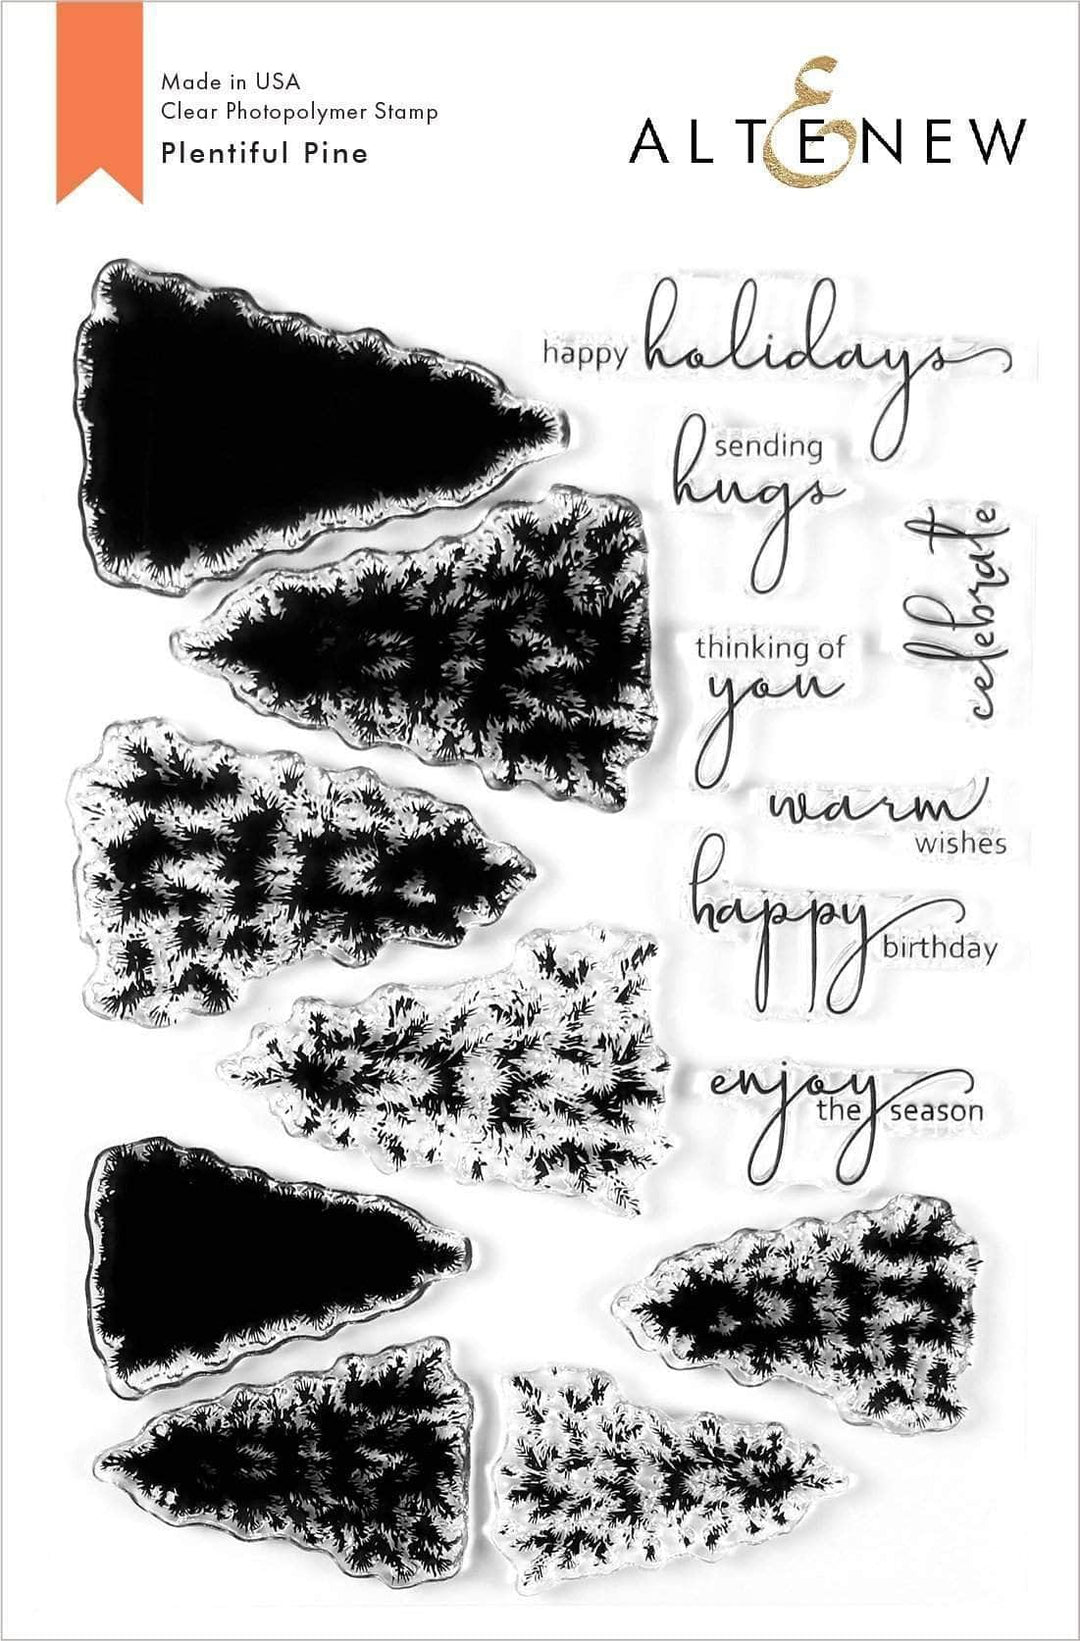 Made in USA
Clear Photopolymer Stamp
Plentiful Pine
ALTENEW
happy holidays
sending
hugs
celebrate
thinking of
you
warm
wishes
happy
birthday
enjoy
the season